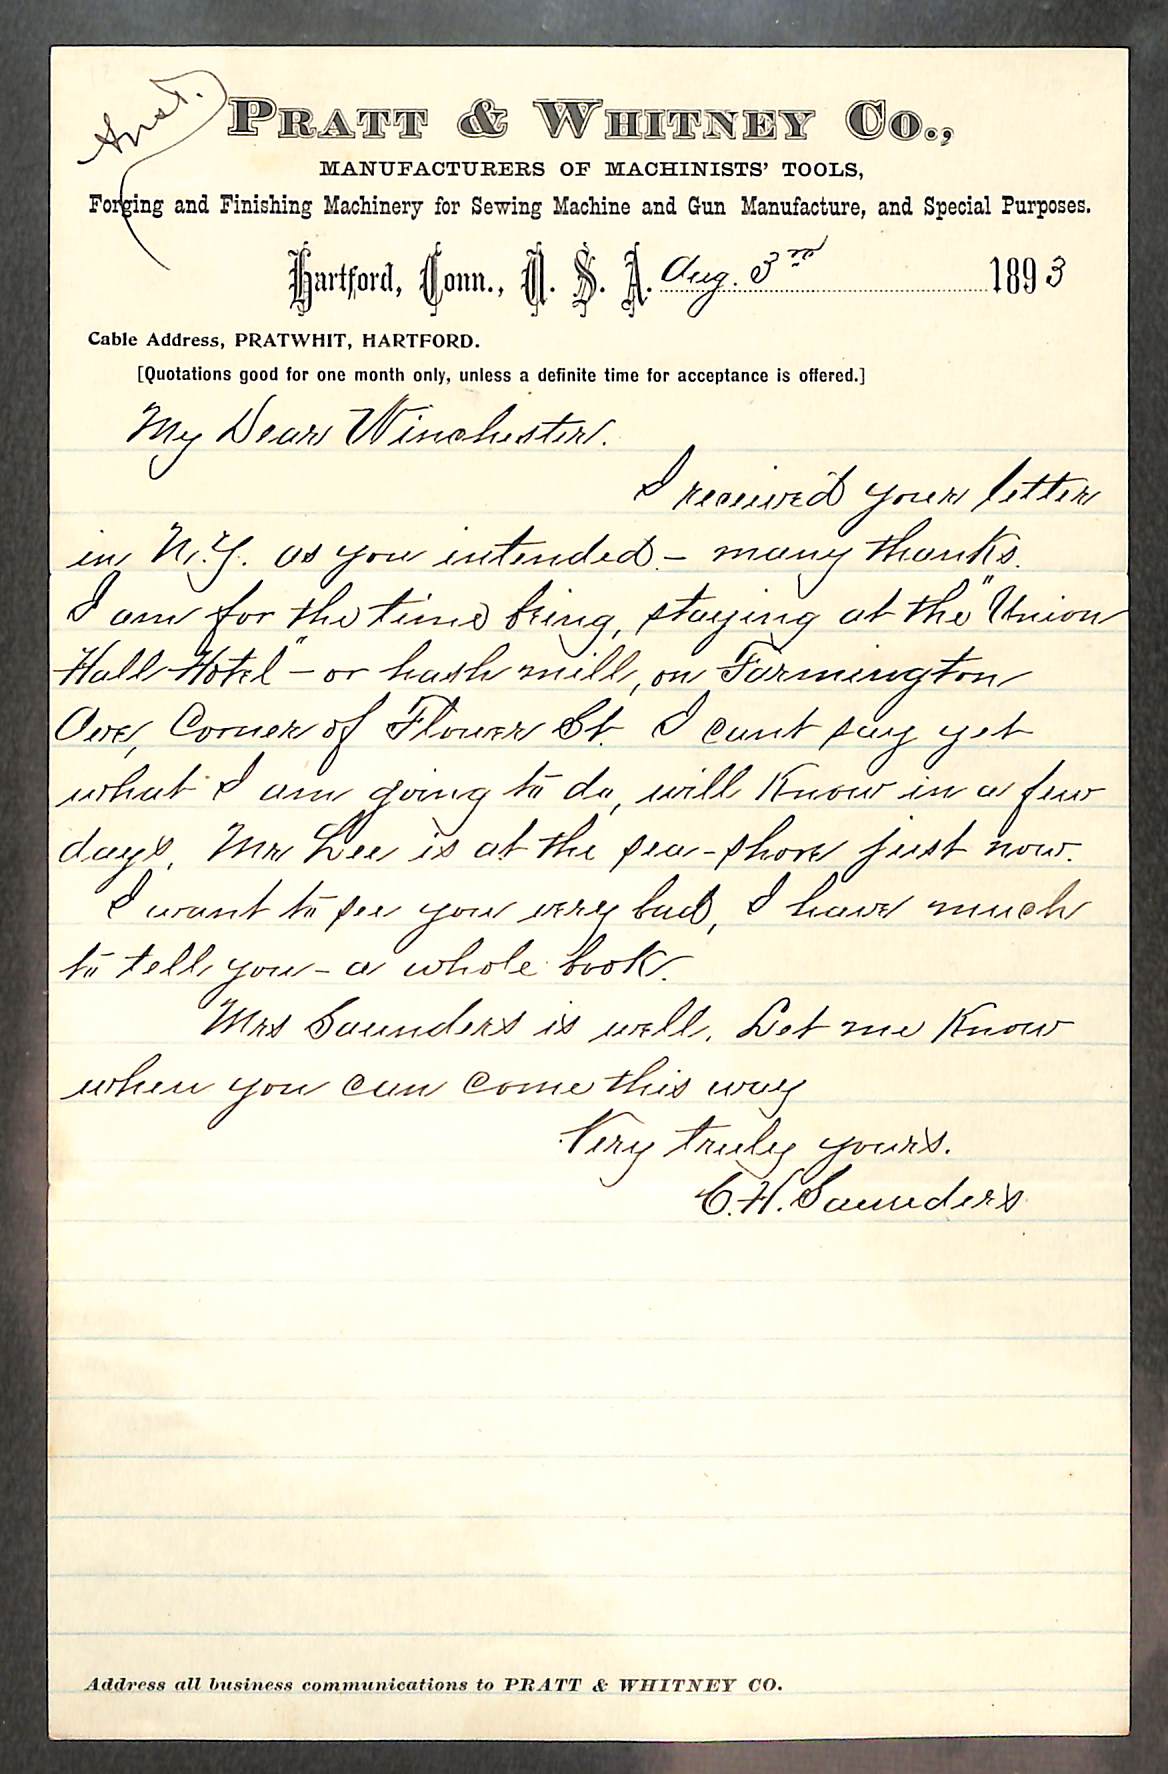 Anst.
PRATT & WHITNEY CO.,
MANUFACTURERS OF MACHINISTS' TOOLS,
Forging and Finishing Machinery for Sewing Machine and Gun Manufacture, and Special Purposes.
Hartford, Conn., U. S. A. Aug. 3rd 1893
Cable Address, PRATWHIT, HARTFORD.
[Quotations good for one month only, unless a definite time for acceptance is offered.]
My Dear Winchester.
I received your letter
in N.Y. as you intended - many thanks.
I am for the time being, staying at the "Union
Hall Hotel" - or hash mill, on Farmington
Ave, Corner of Flower St. I cant say yet
what I am going to do, will Know in a few
days. Mr Lee is at the sea-shore just now.
I want to see you very bad, I have much
to tell you - a whole book.
Mrs Saunders is well. Let me Know
when you can come this way
Very truly yours.
C.H. Saunders
Address all business communications to PRATT & WHITNEY CO.